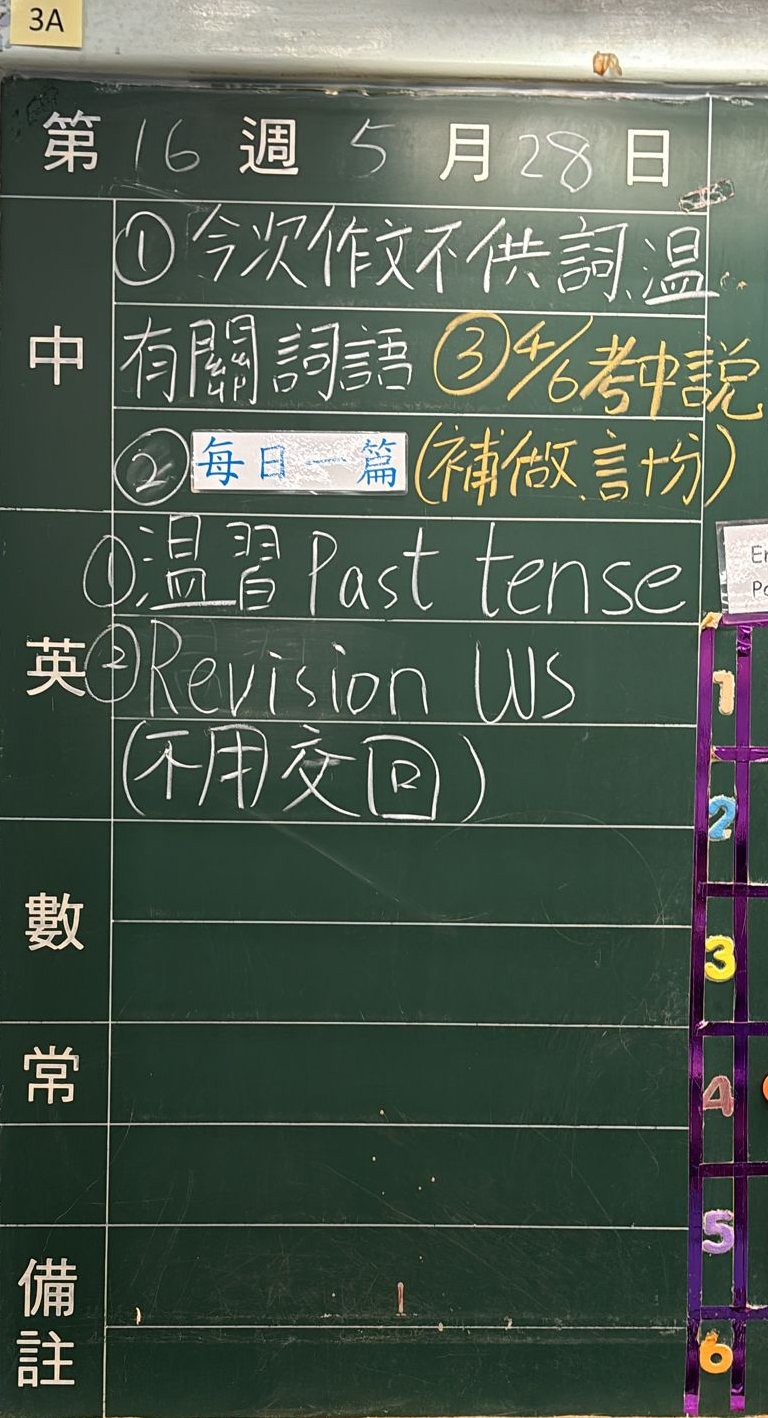 3A
第 16 週 5 月 28 日
中
①今次作文不供詞、溫
有關詞語 ③4/6考中說
②每日一篇(補做、言十分)
英
①溫習 Past tense
②Revision WS
(不用交回)
數
常
備註
1
2
3
4
5
6